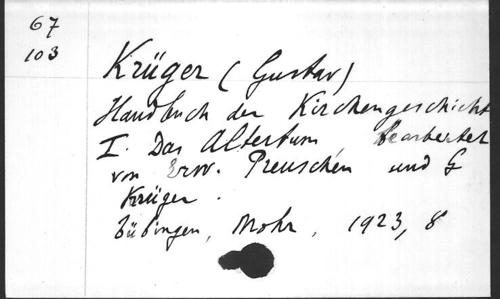 67
103
Krüger (Gustav)
Handbuch der Kirchengeschicht
I. Das Altertum bearbeitet
von Erw. Preuschen und G
Krüger.
Tübingen, Mohr, 1923, 8